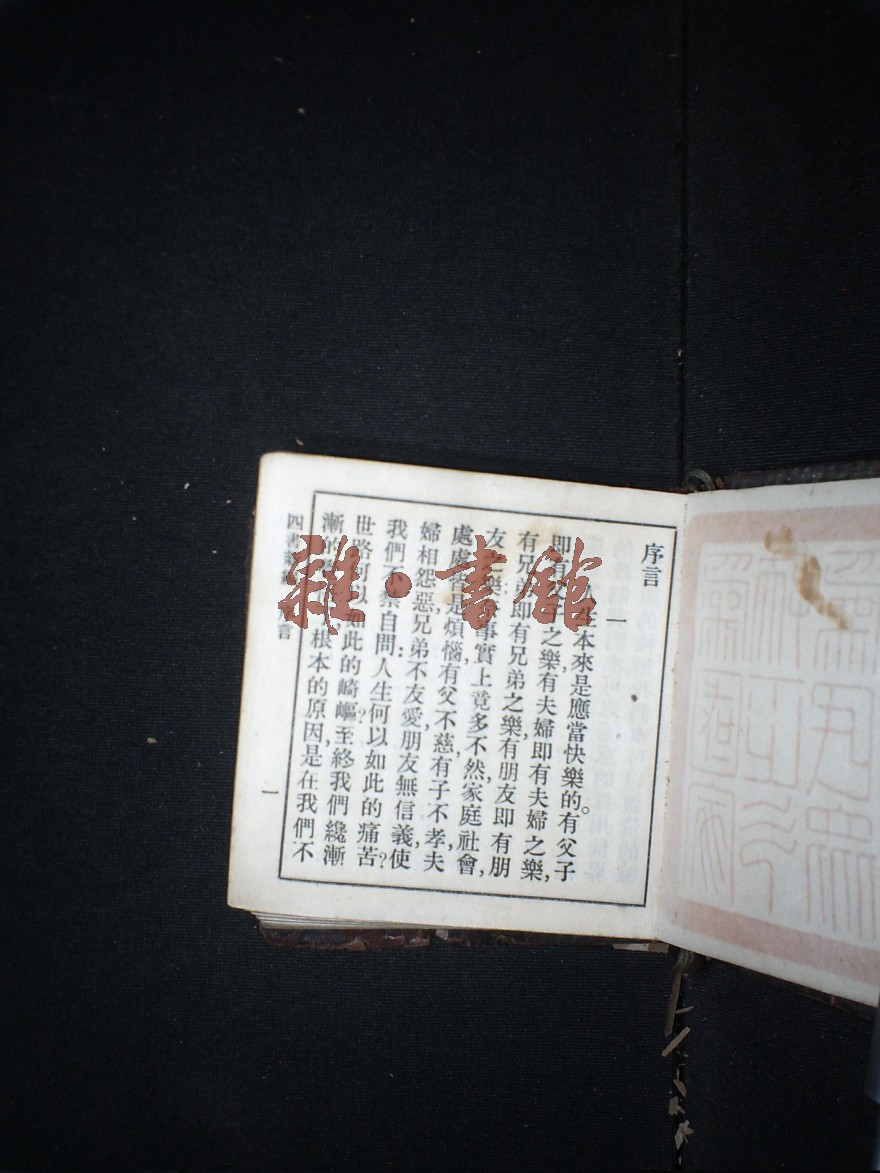 序言
一
人生本來是應當快樂的。有父子
即有父子之樂,有夫婦即有夫婦之樂,
有兄弟即有兄弟之樂,有朋友即有朋
友之樂,事實上竟多不然,家庭社會,
處處皆是煩惱,有父不慈,有子不孝,夫
婦相怨惡,兄弟不友愛,朋友無信義,使
我們不禁自問:人生何以如此的痛苦?
世路何以如此的崎嶇?至終我們纔漸
漸的 根本的原因,是在我們不
四書 序言
一
雜·書館